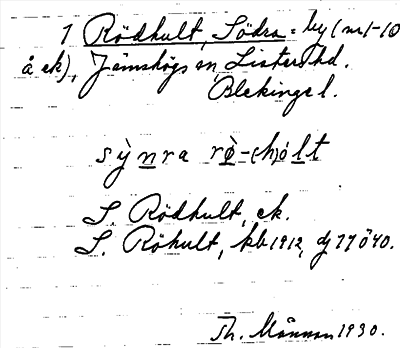 1 Rödhult, Södra = by (nr 1-10
å ek), Jämshögs sn, Listers hd.
Blekinge l.
sỳnra rø̀-(h)ólt
S. Rödhult, ek.
S. Röhult, kb 1912, dj 77 ö 40.
Th. Månsson 1930.